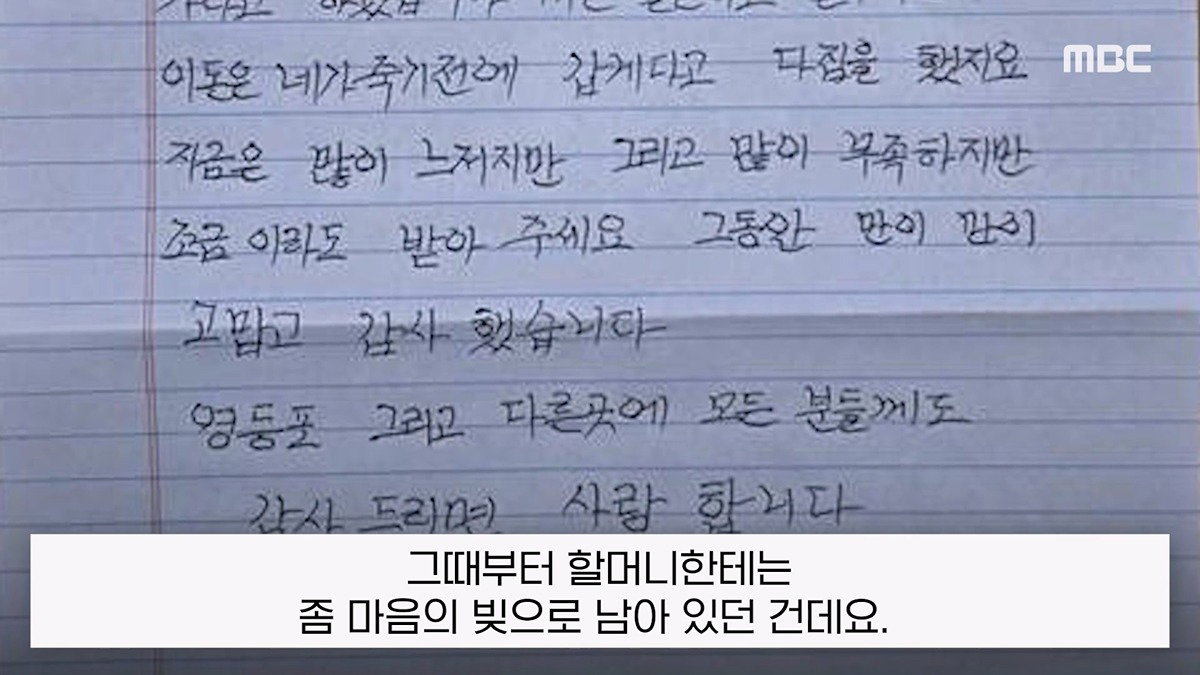 하였습니다
이돈은 네가죽기전에 갑게다고 다짐을 했지요
MBC
지금은 많이 느저지만 그리고 많이 부족하지만
조금 이라도 받아 주세요 그동안 만이 만이
고맙고 감사 했습니다
영등포 그리고 다른곳에 모든 분들께도
감사 드리며, 사랑 합니다
그때부터 할머니한테는
좀 마음의 빚으로 남아 있던 건데요.